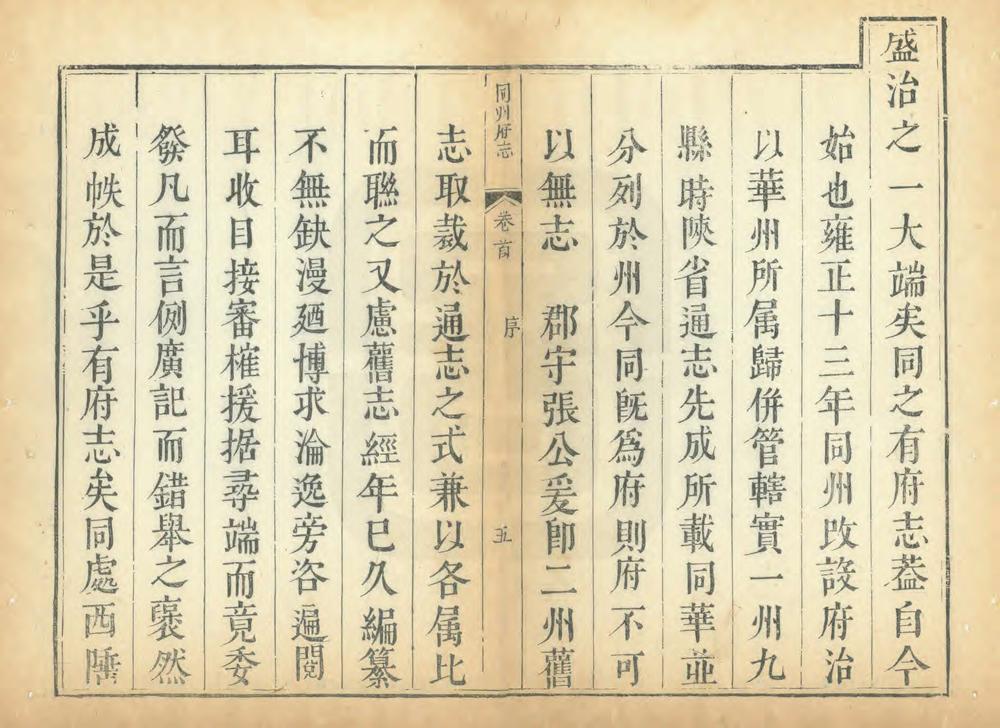 盛治之一大端矣同之有府志葢自今
始也雍正十三年同州改設府治
以華州所属歸併管轄實一州九
縣時陝省通志先成所載同華並
分列於州今同旣爲府則府不可
以無志　郡守張公爰卽二州舊
同州府志　卷首　序　五
志取裁於通志之式兼以各属比
而聯之又慮舊志經年已久編纂
不無缺漫廼博求淪逸旁咨遍閱
耳收目接審榷援据尋端而竟委
發凡而言例廣記而錯舉之裒然
成帙於是乎有府志矣同處西陲